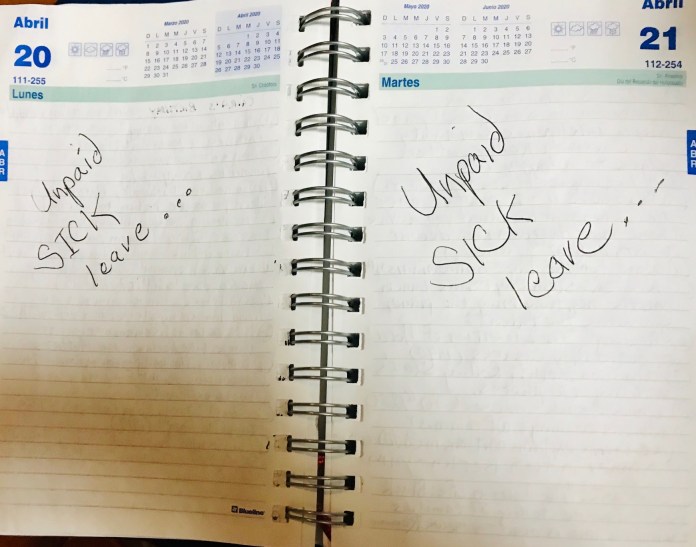 Abril
20
111-255
Lunes
Marzo 2020
D L M M J V S
1 2 3 4 5 6 7
8 9 10 11 12 13 14
15 16 17 18 19 20 21
22 23 24 25 26 27 28
29 30 31
Abril 2020
D L M M J V S
1 2 3 4
5 6 7 8 9 10 11
12 13 14 15 16 17 18
19 20 21 22 23 24 25
26 27 28 29 30
A
B
R
Unpaid
SICK
leave...
Blueline
Mayo 2020
D L M M J V S
1 2
3 4 5 6 7 8 9
10 11 12 13 14 15 16
17 18 19 20 21 22 23
24 25 26 27 28 29 30
31
Junio 2020
D L M M J V S
1 2 3 4 5 6
7 8 9 10 11 12 13
14 15 16 17 18 19 20
21 22 23 24 25 26 27
28 29 30
Abril
21
112-254
Martes
A
B
R
Unpaid
SICK
leave...